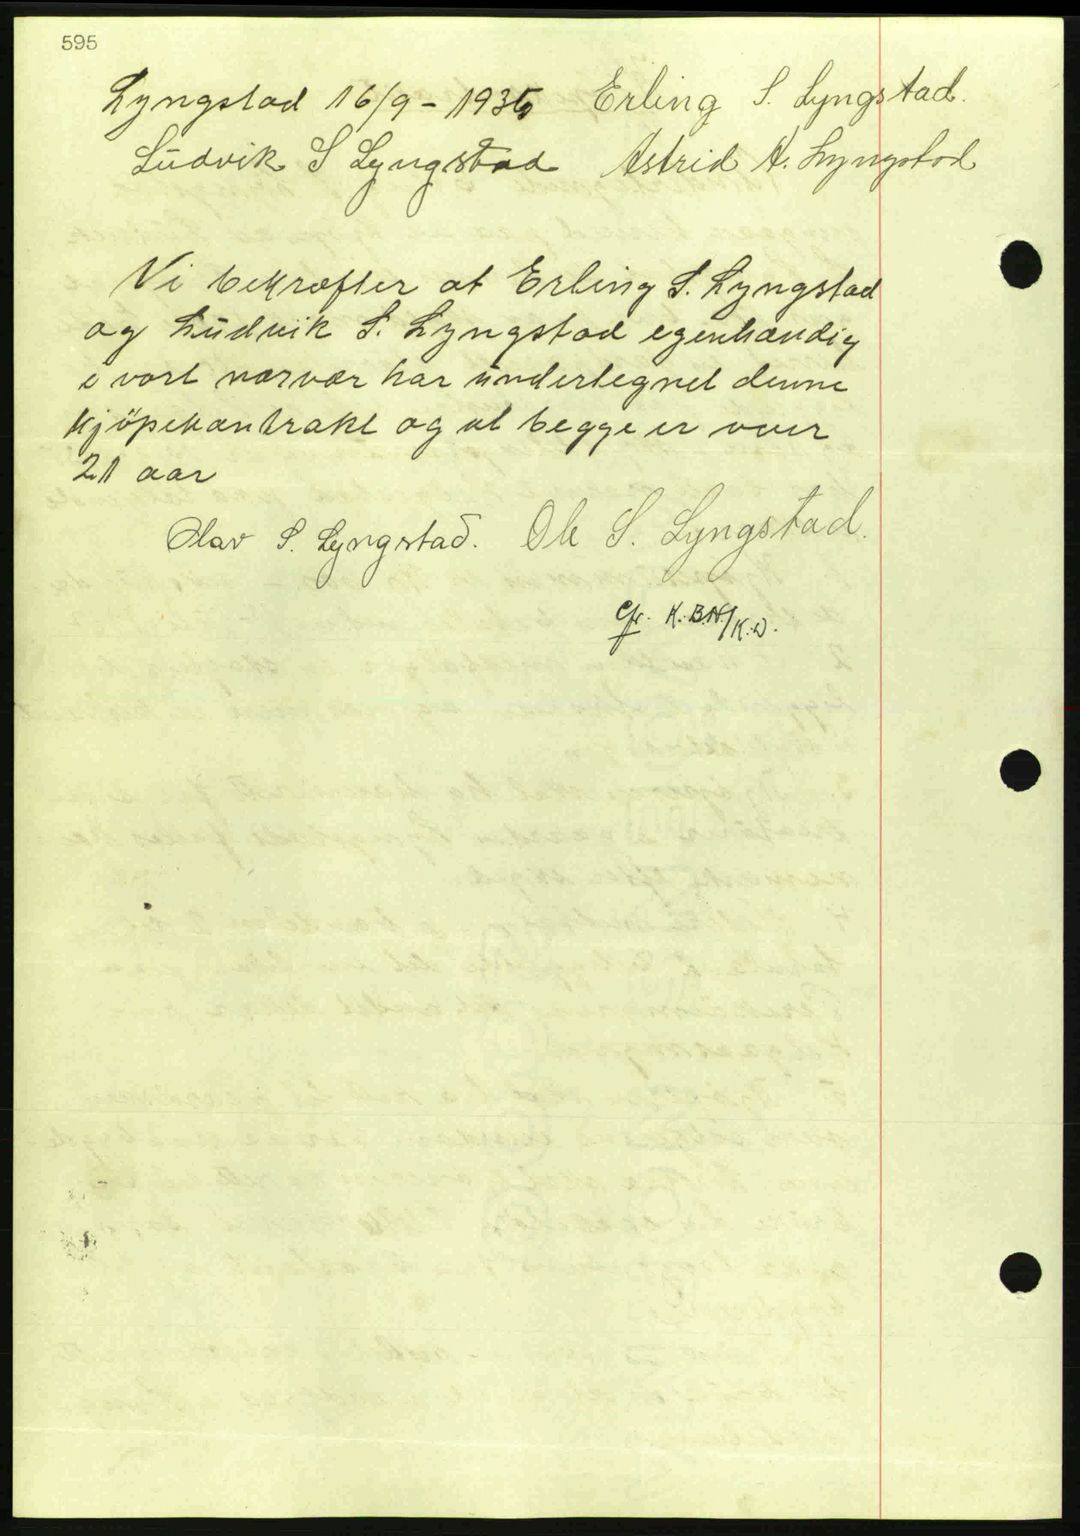 595
Lyngstad 16/9 - 1935 Erling S. Lyngstad.
Ludvik S Lyngstad Astrid A. Lyngstad
Vi bekræfter at Erling S. Lyngstad
og Ludvik S. Lyngstad egenhændig
i vort nærvær har undertegnet denne
kjöpekontrakt og at begge er over
21 aar
Olav S. Lyngstad. Ole S. Lyngstad.
Gfr. K. B.N./K.D.